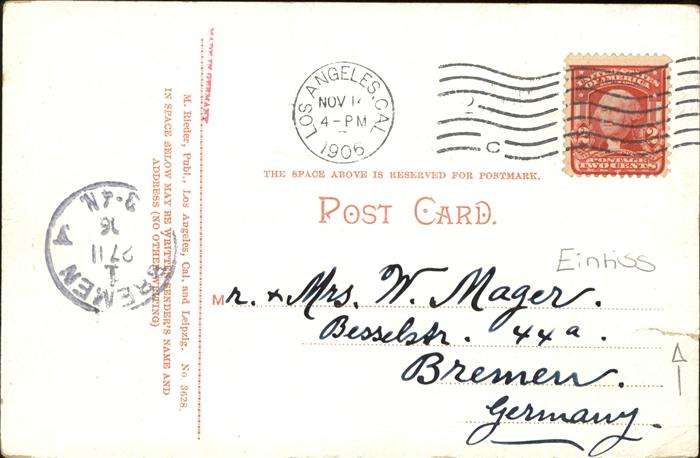 LOS ANGELES, CAL.
NOV 1
4-PM
1906
C
TWO CENTS
THE SPACE ABOVE IS RESERVED FOR POSTMARK.
POST CARD.
Einriss
Mr. & Mrs. W. Mager.
Besselstr. 44a.
Bremen.
Germany.
M. Rieder, Publ., Los Angeles, Cal. and Leipzig. No 3628.
IN SPACE BELOW MAY BE WRITTEN SENDER'S NAME AND
ADDRESS (NO OTHER WRITING)
BREMEN
1
27 11
3-4 N